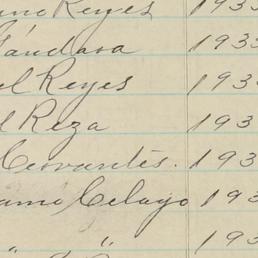 Reyes 1933
Gándara 1933
el Reyes 193
l Reza 193
Cervantes. 193
Celayo 193
" " 193